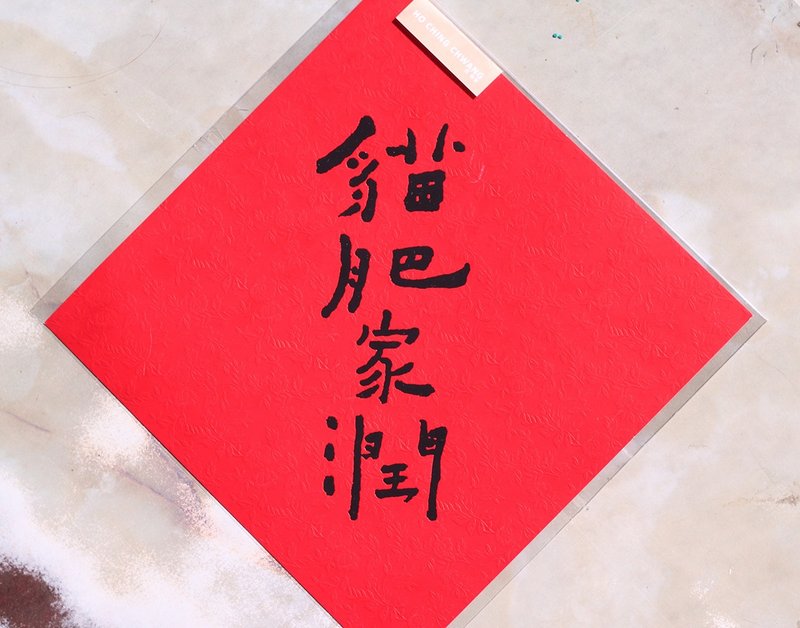 HO CHING CHWANG
貓肥家潤